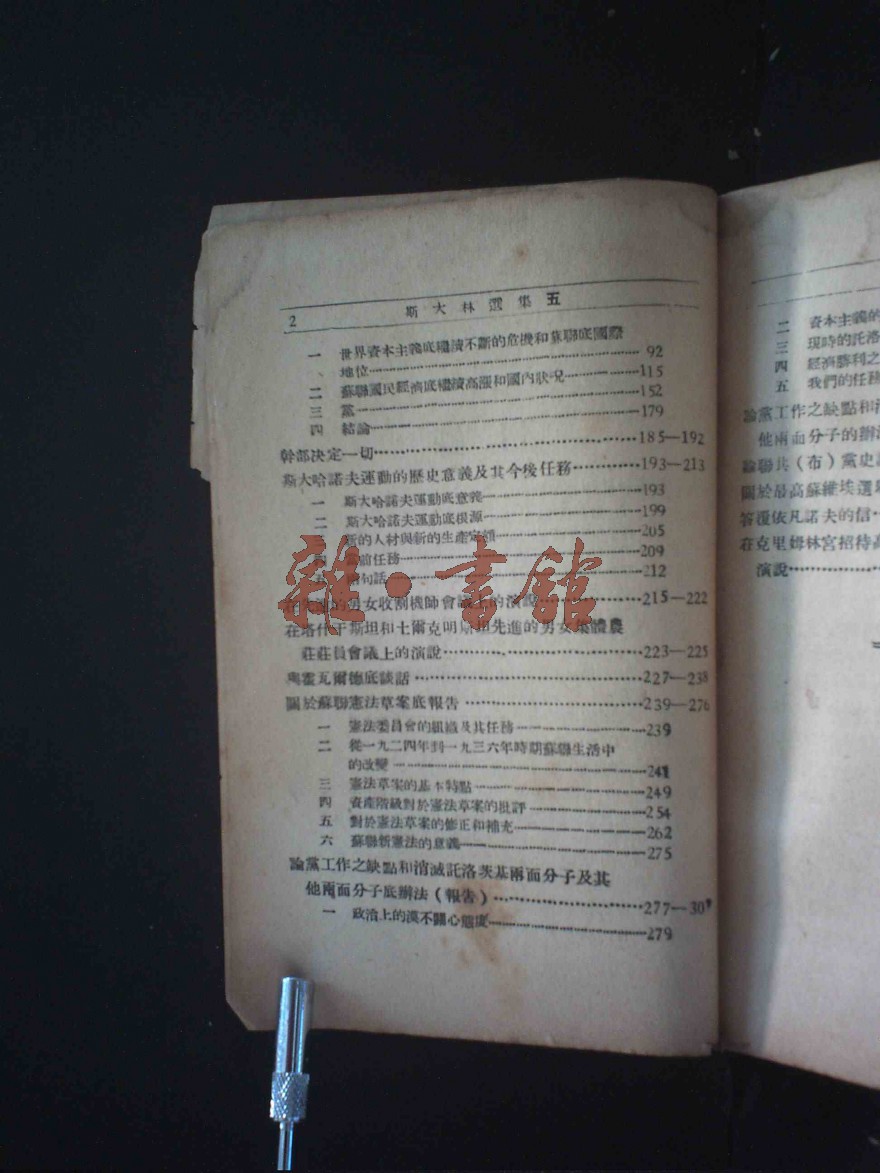 2 斯大林選集五
一 世界資本主義底繼續不斷的危機和蘇聯底國際
地位……92
二 蘇聯國民經濟底繼續高漲和國內狀况……115
三 黨……152
四 結論……179
幹部決定一切……185—192
斯大哈諾夫運動的歷史意義及其今後任務……193—213
一 斯大哈諾夫運動底意義……193
二 斯大哈諾夫運動底根源……199
新的人材與新的生產定額……205
前任務……209
句話……212
的男女收割機師會議上的演說……215—222
在塔什干斯坦和土爾克明斯坦先進的男女集體農
莊莊員會議上的演說……223—225
與霍瓦爾德底談話……227—238
關於蘇聯憲法草案底報告……239—276
一 憲法委員會的組織及其任務……239
二 從一九二四年到一九三六年時期蘇聯生活中
的改變……241
三 憲法草案的基本特點……249
四 資產階級對於憲法草案的批評……254
五 對於憲法草案的修正和補充……262
六 蘇聯新憲法的意義……275
論黨工作之缺點和消滅託洛茨基兩面分子及其
他兩面分子底辦法（報告）……277—30
一 政治上的漠不關心態度……279
二 資本主義的
三 現時的托洛
四 經濟勝利之
五 我們的任務
論黨工作之缺點和消
他兩面分子的辦法
論聯共（布）黨史
關於最高蘇維埃選
答覆依凡諾夫的信…
在克里姆林宮招待高
演說……
雜·書館